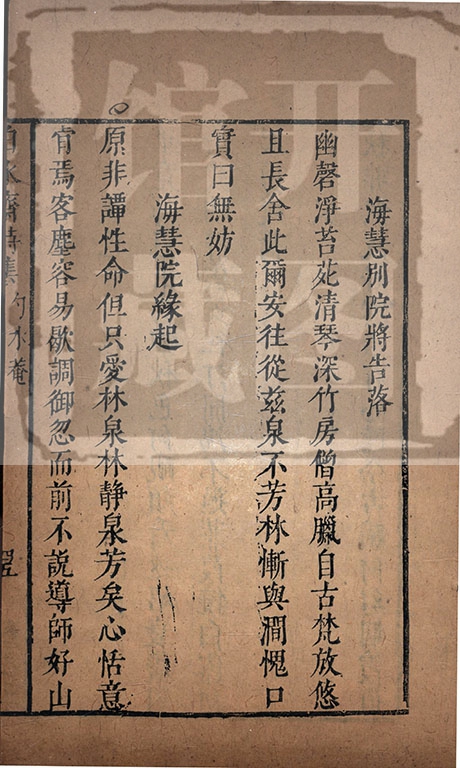 海慧別院將告落
幽磬淨苔苑清琴深竹房僧高臘自古梵放悠
且長舍此爾安往從兹泉不芳林慚與澗愧口
實曰無妨
海慧院緣起
原非譚性命但只愛林泉林静泉芳矣心恬意
肯焉客塵容易歇調御忽而前不說導師好山
齋詩集 勺水菴
开
馆藏